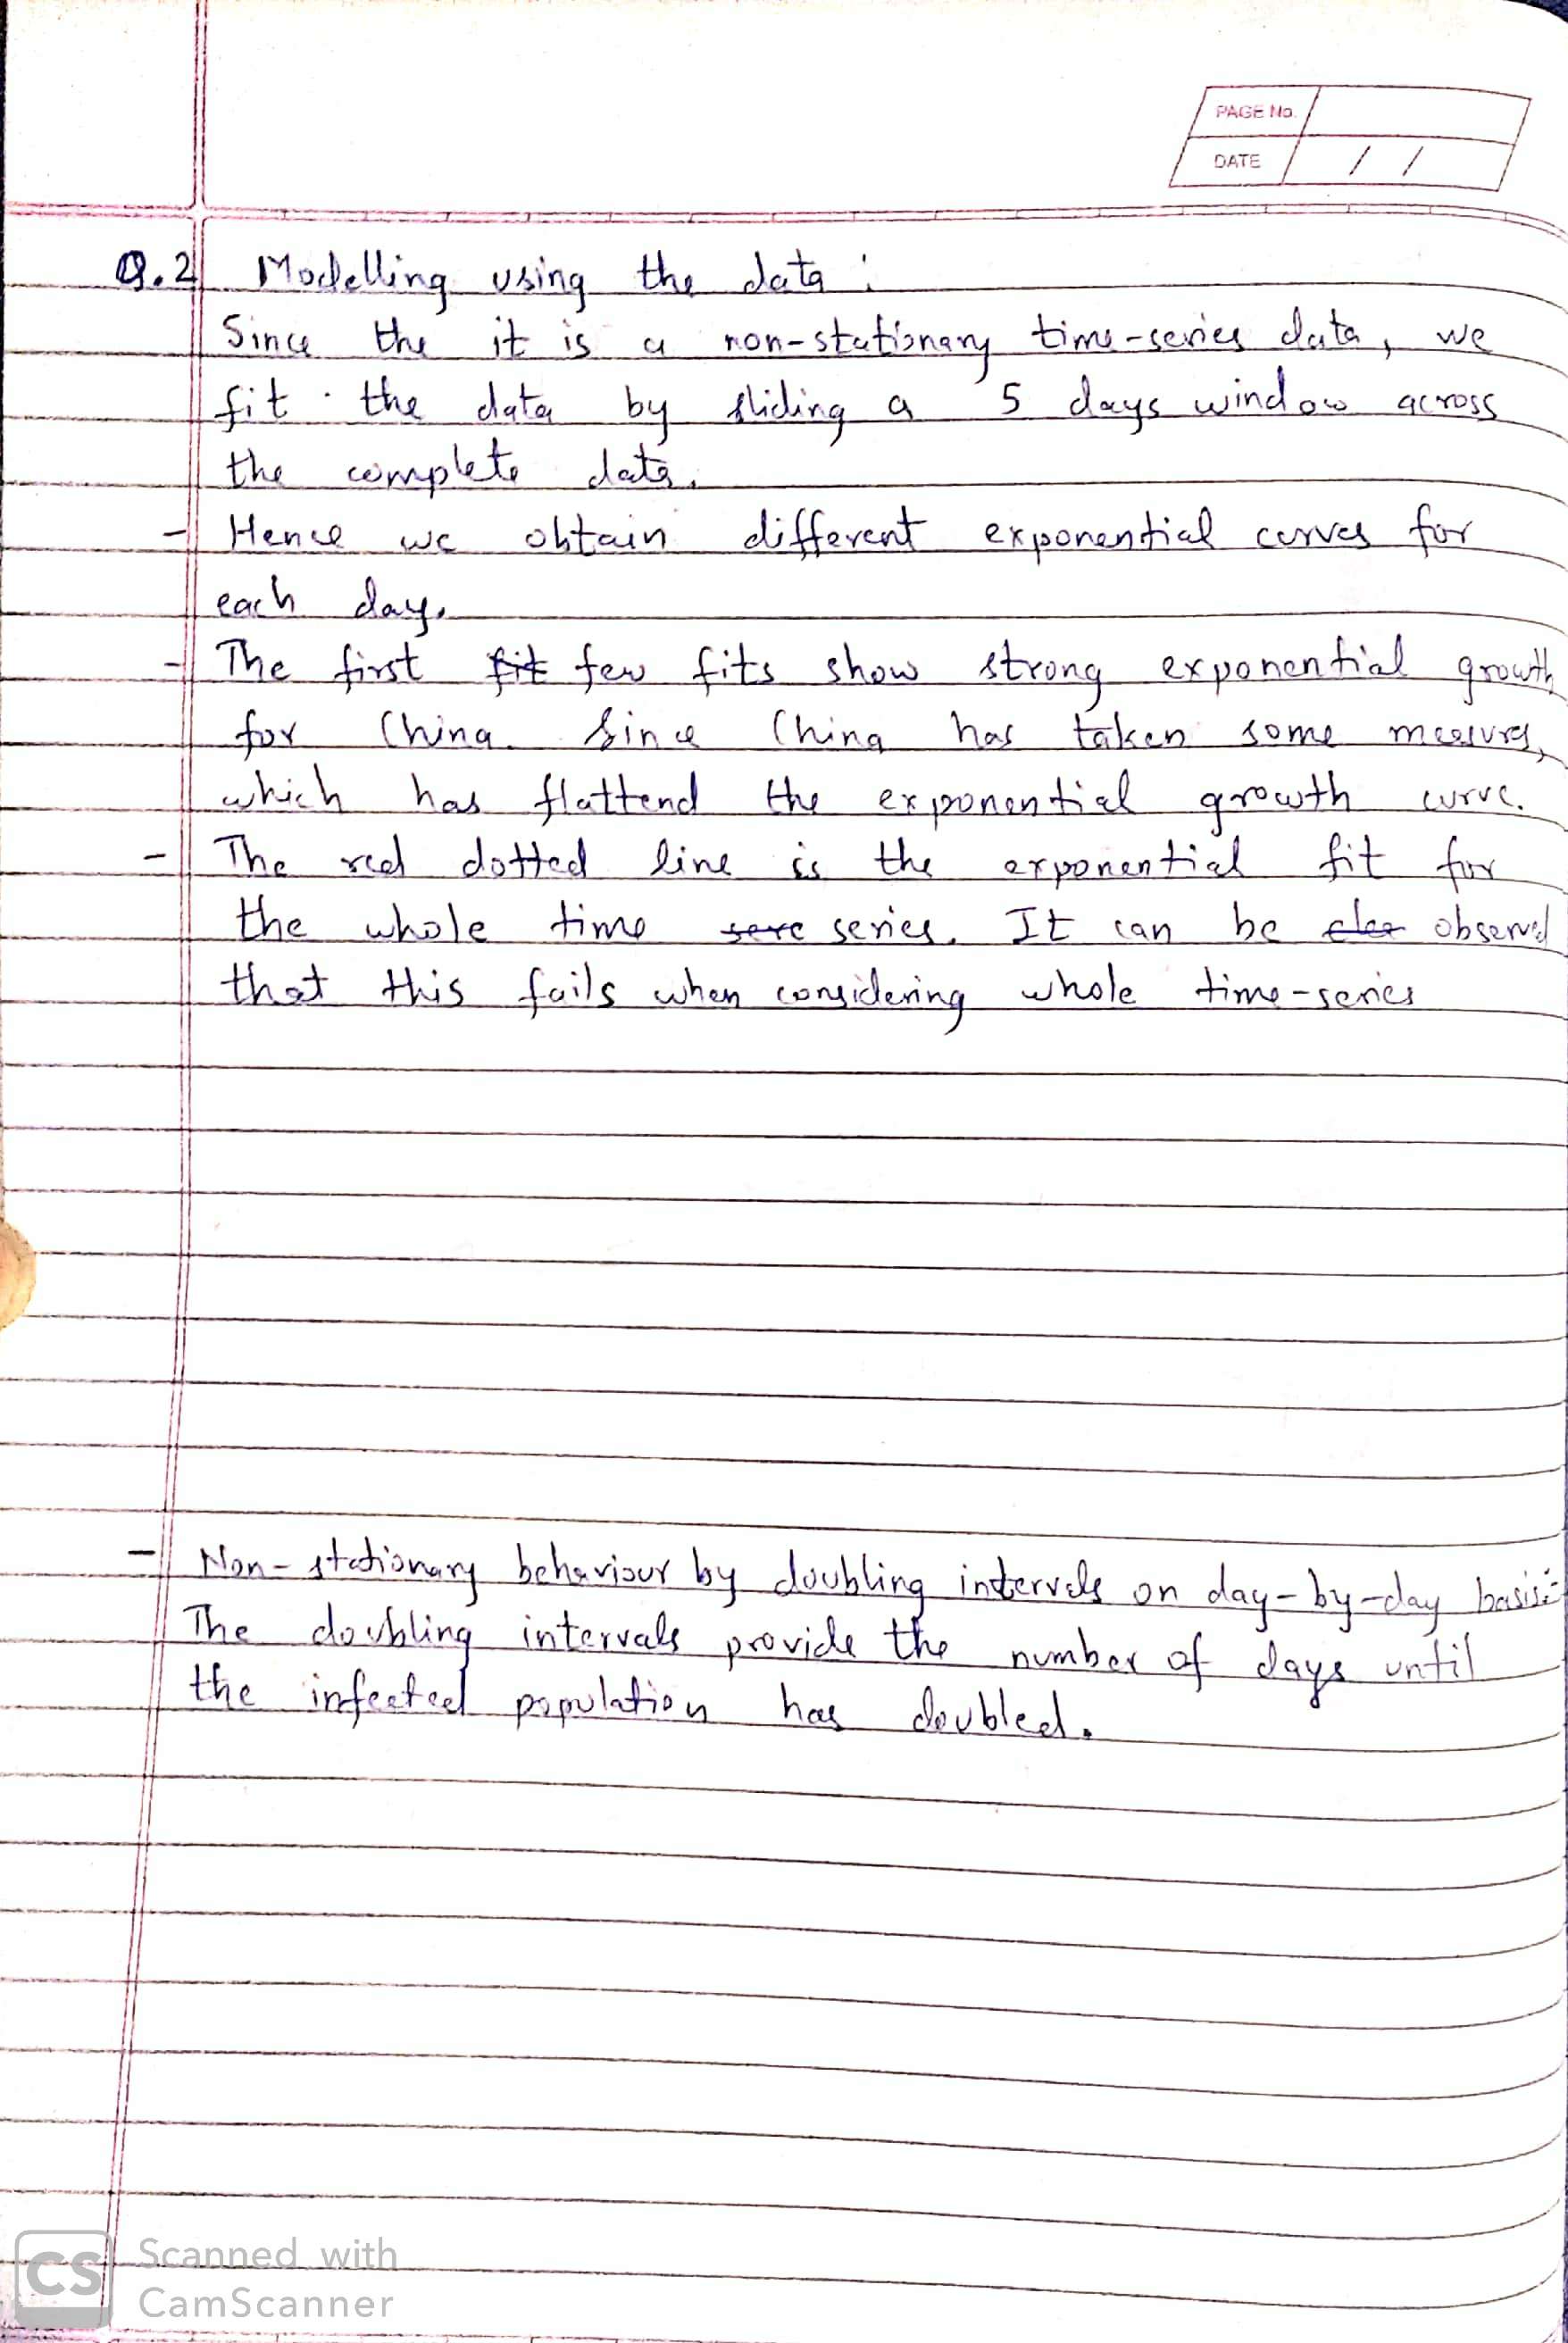 PAGE No.
DATE / /
Q.2 Modelling using the data :
Since the it is a non-stationary time-series data, we
fit the data by sliding a 5 days window across
the complete data.
- Hence we obtain different exponential curves for
each day.
- The first fit few fits show strong exponential growth
for China. Since China has taken some measures,
which has flattend the exponential growth curve.
- The red dotted line is the exponential fit for
the whole time sere series. It can be clea observed
that this fails when considering whole time-series
- Non-stationary behaviour by doubling intervals on day-by-day basis:
The doubling intervals provide the number of days until
the infected population has doubled.
CS Scanned with
CamScanner